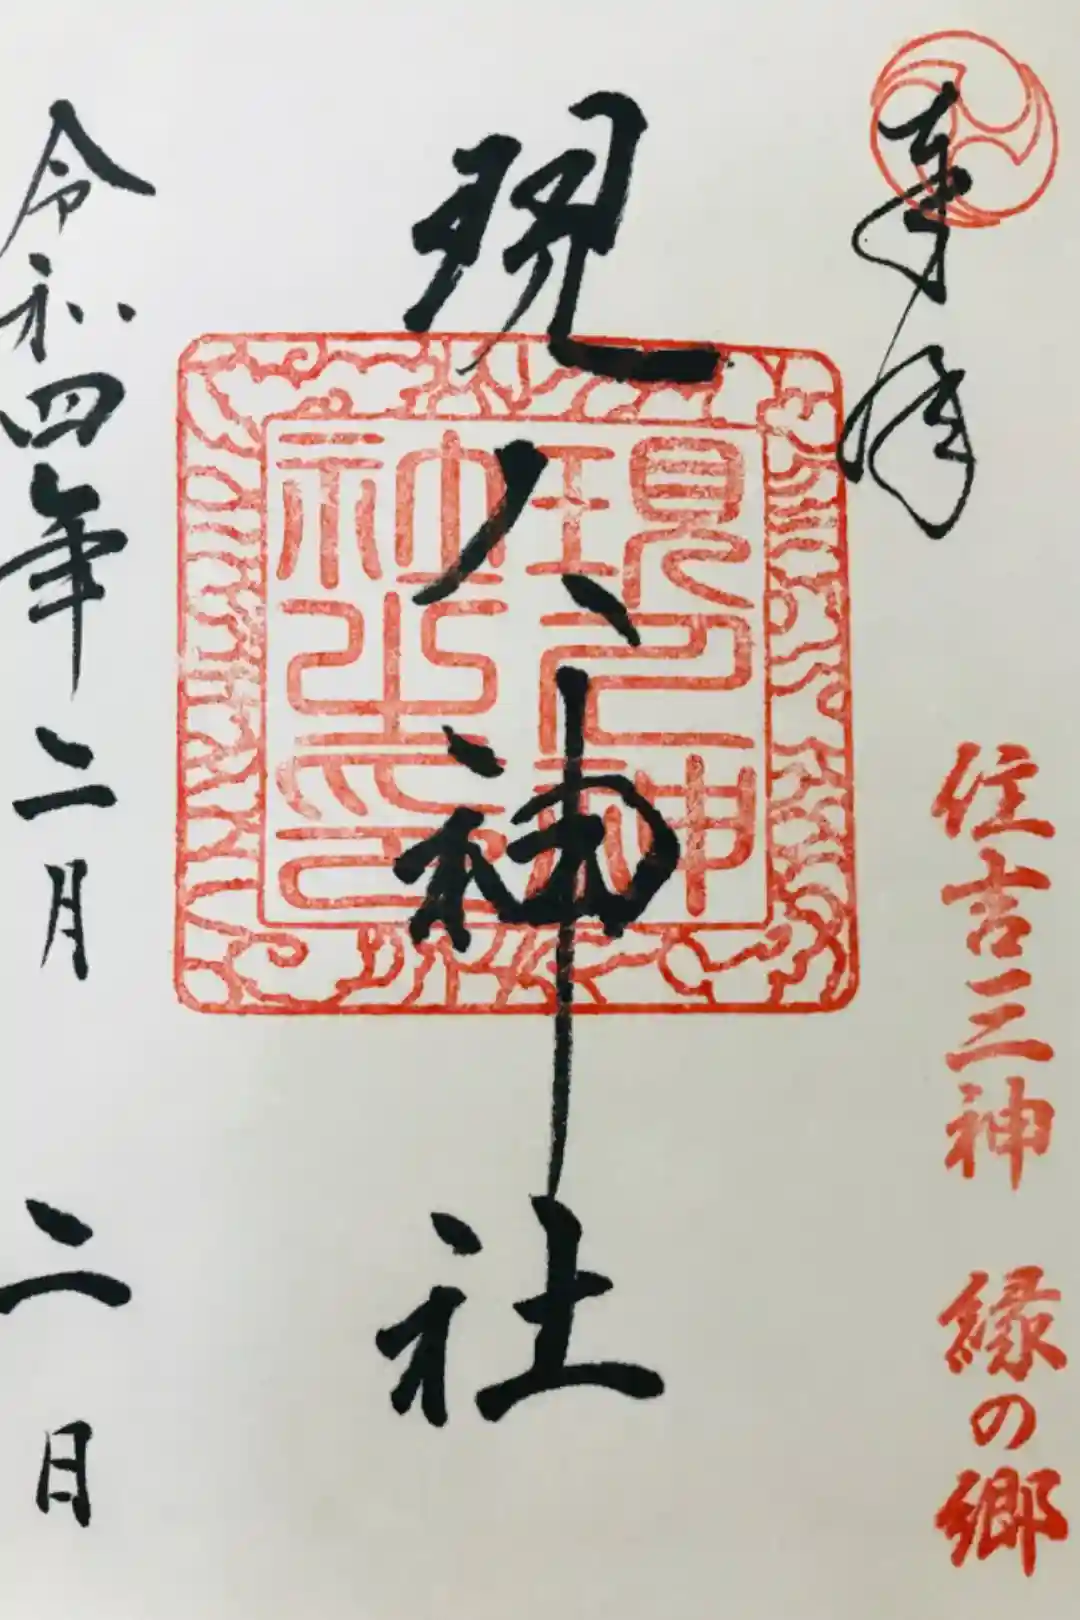 奉拝
住吉三神 縁の郷
現人神社
現人神
神社之印
令和四年二月 二日